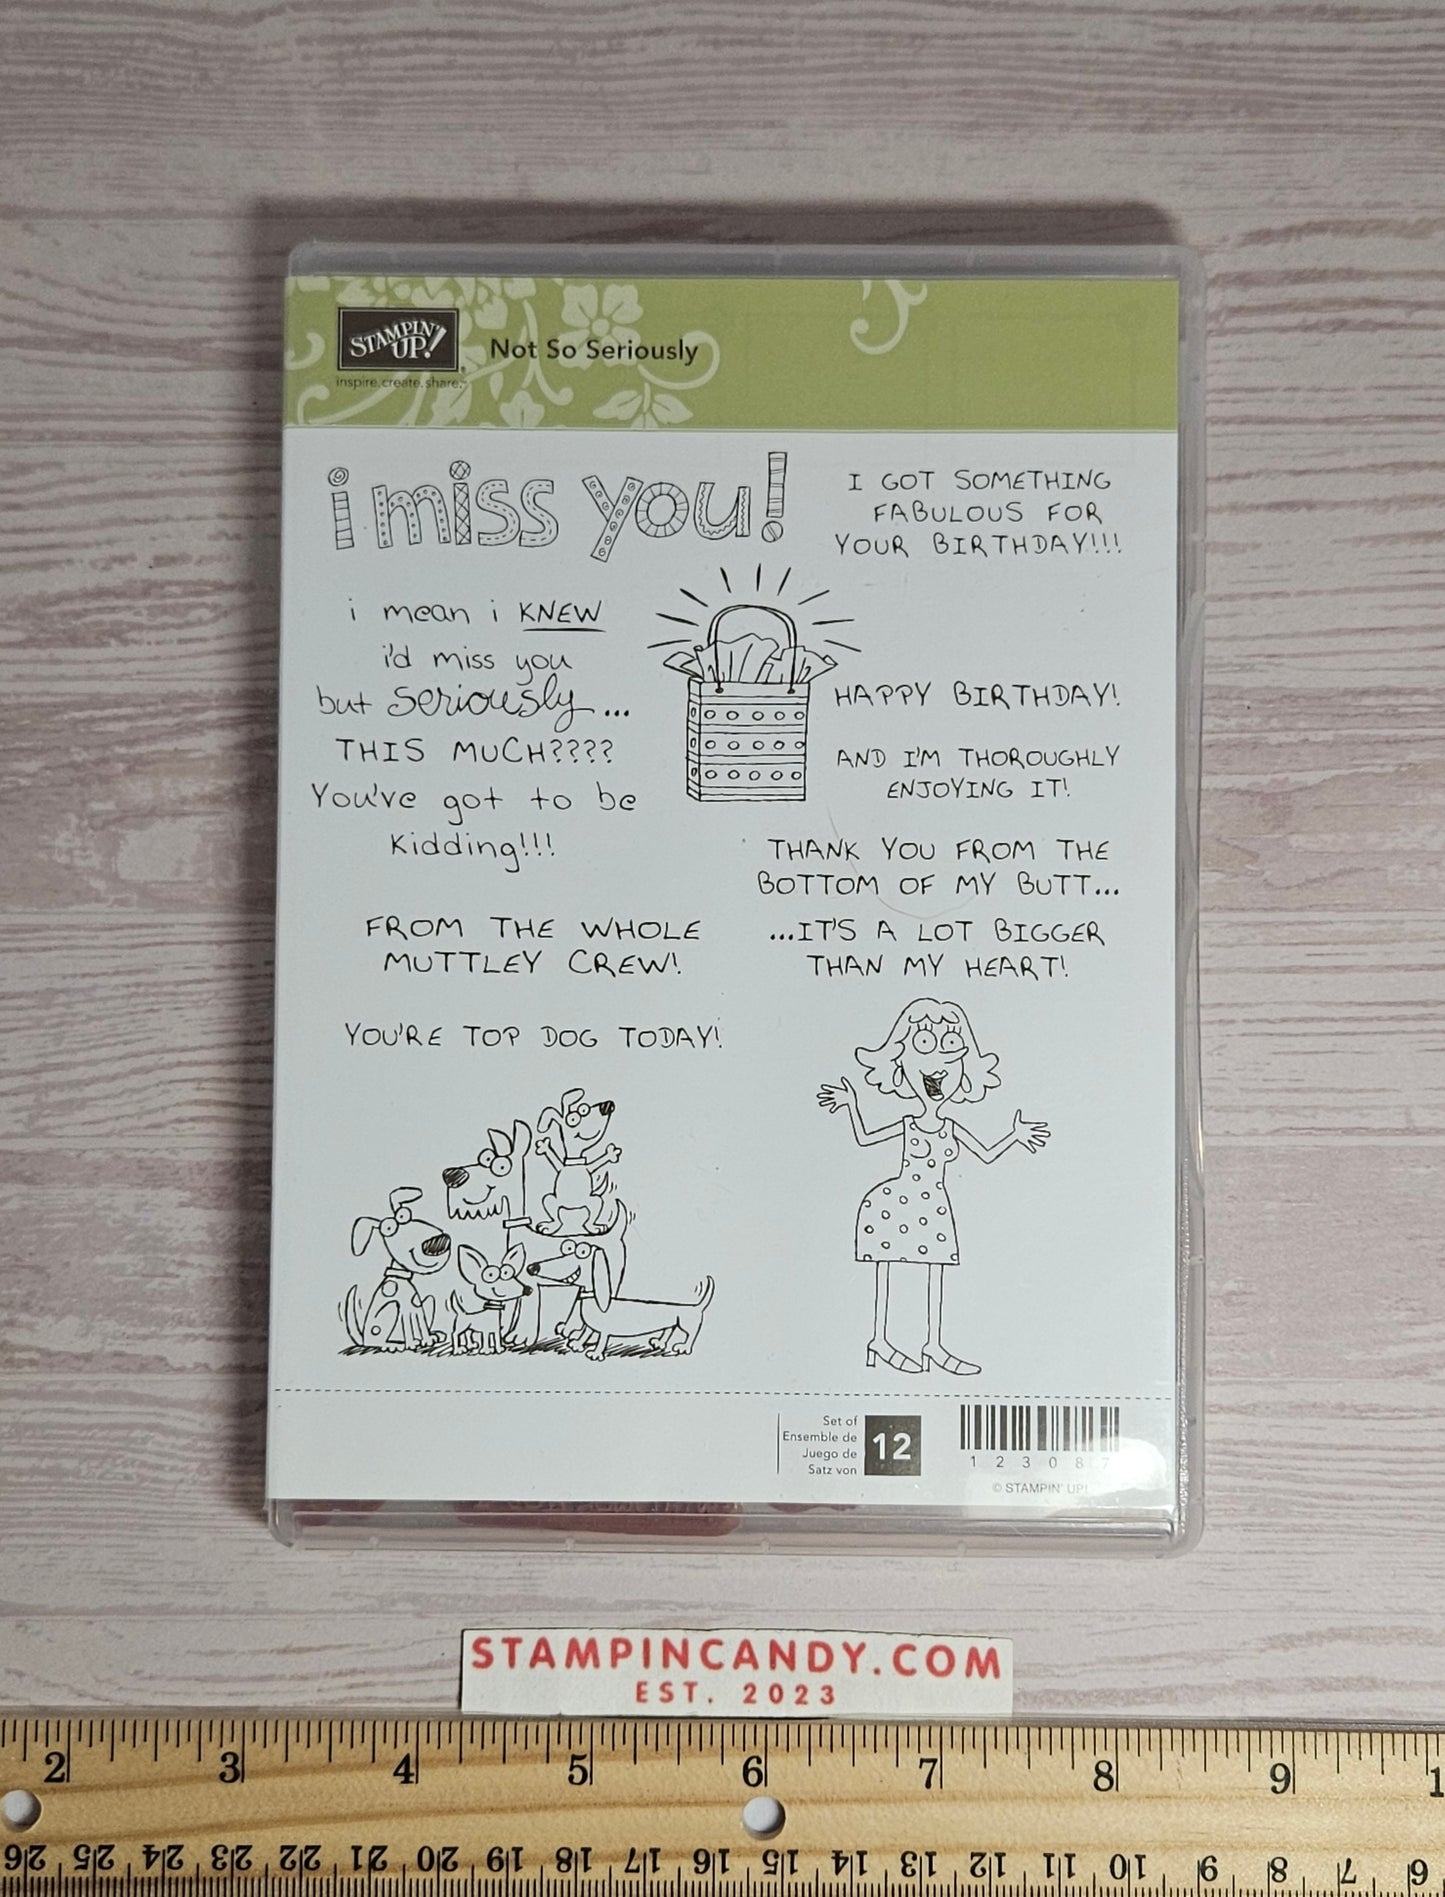 STAMPIN' UP!
inspire.create.share.
Not So Seriously
i miss you!
I GOT SOMETHING
FABULOUS FOR
YOUR BIRTHDAY!!!
i mean i KNEW
i'd miss you
but seriously...
THIS MUCH????
You've got to be
kidding!!!
HAPPY BIRTHDAY!
AND I'M THOROUGHLY
ENJOYING IT!
THANK YOU FROM THE
BOTTOM OF MY BUTT...
...IT'S A LOT BIGGER
THAN MY HEART!
FROM THE WHOLE
MUTTLEY CREW!
YOU'RE TOP DOG TODAY!
Set of
Ensemble de
Juego de
Satz von
12
1 2 3 0 8 7
© STAMPIN' UP!
STAMPINCANDY.COM
EST. 2023
2 3 4 5 6 7 8 9 1
26 25 24 23 22 21 20 19 18 17 16 15 14 13 12 11 10 9 8 7 6